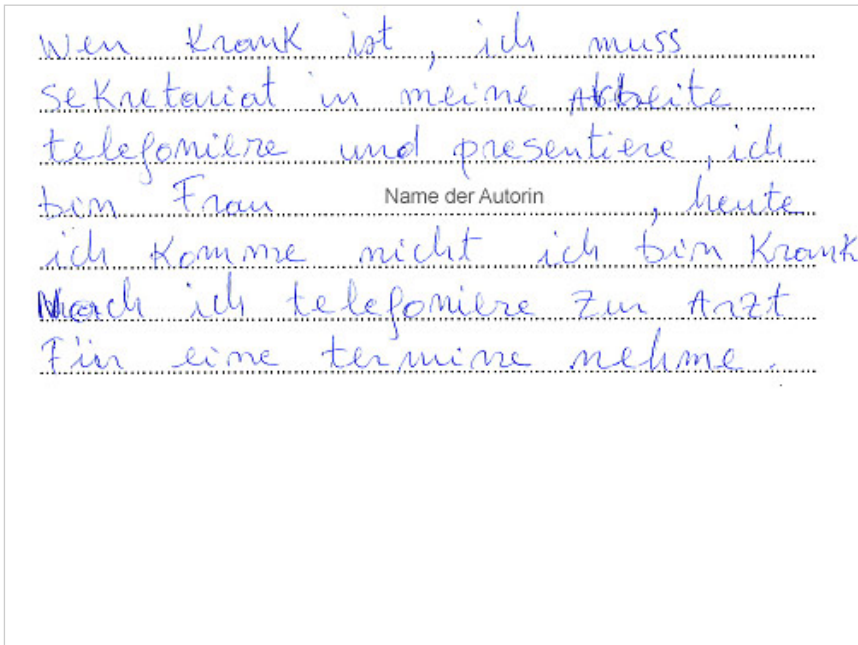 Wen Krank ist, ich muss
sekretariat in meine Arbeite
telefoniere und presentiere, ich
bin Frau Name der Autorin, heute
ich komme nicht ich bin Krank
Nach ich telefoniere zur Arzt
Für eine termine nehme.